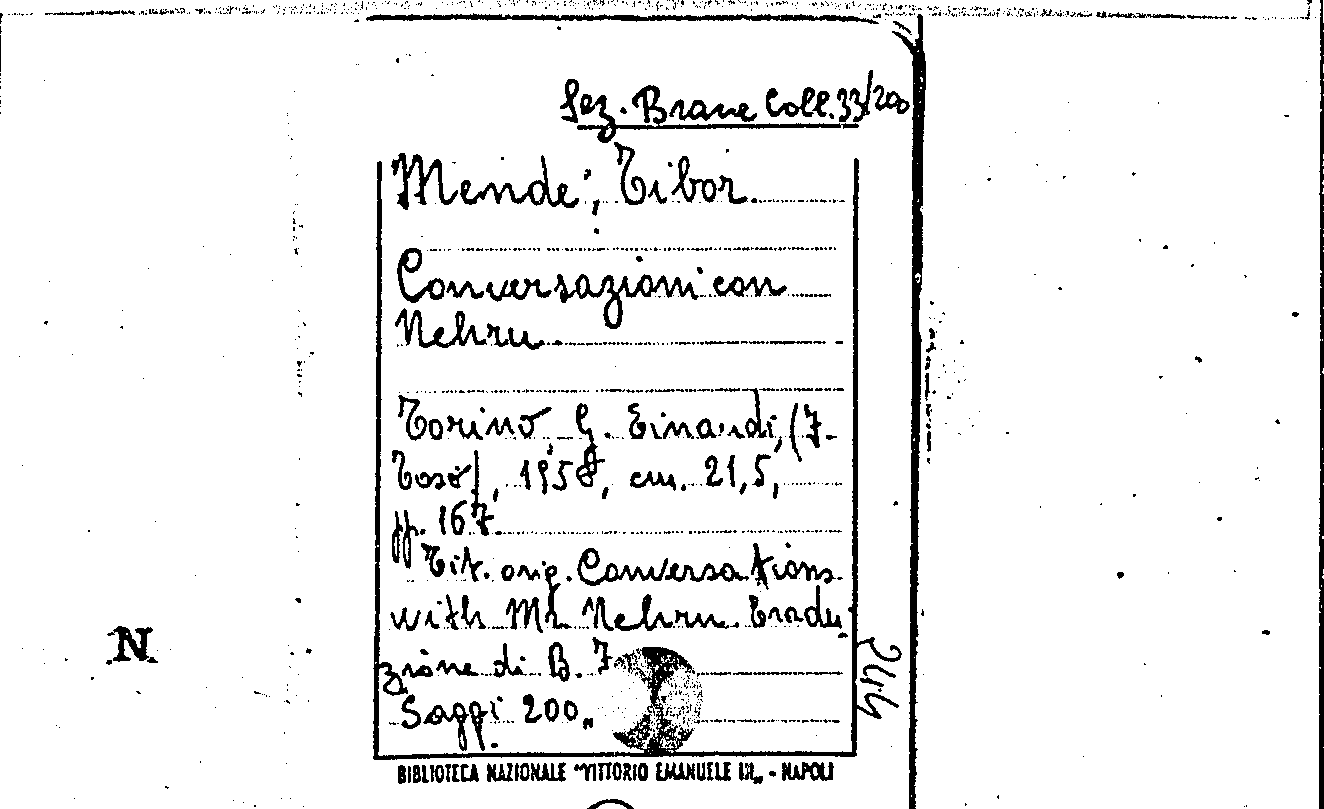 Sez. Brane Coll. 33/200
Mende', Tibor.
Conversazioni con
Nehru.
Torino, G. Einaudi, (F.
Toso), 1958, cm. 21,5,
pp. 167.
Tit. orig. Conversations
with Mr Nehru. Tradu-
zione di B. F
Saggi 200„
N
BIBLIOTECA NAZIONALE "VITTORIO EMANUELE III„ - NAPOLI